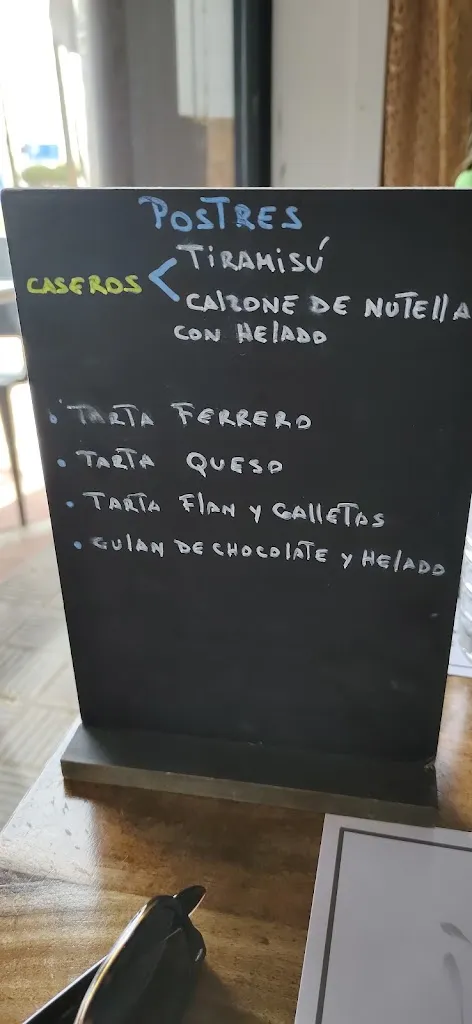 POSTRES
TIRAMISÚ
CASEROS <
CALZONE DE NUTELLA
CON HELADO
• TARTA FERRERO
• TARTA QUESO
• TARTA FLAN Y GALLETAS
• CULAN DE CHOCOLATE Y HELADO